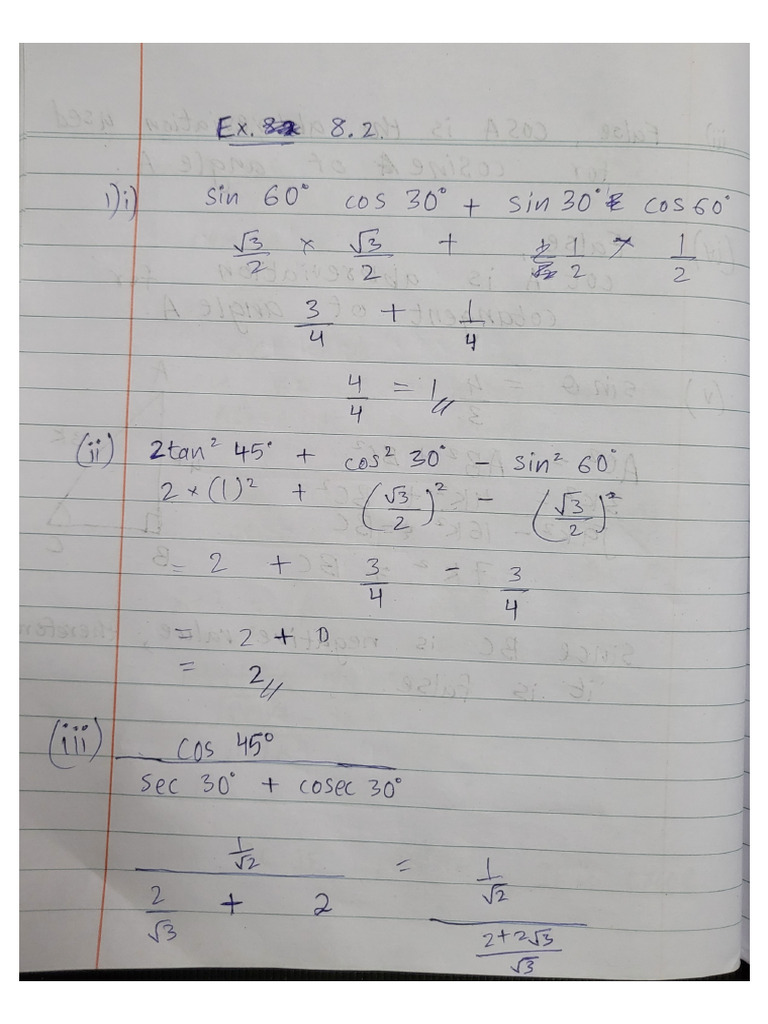 Ex. 8.2
1) i) sin 60° cos 30° + sin 30° cos 60°
√3/2 × √3/2 + 1/2 × 1/2
3/4 + 1/4
4/4 = 1//
(ii) 2tan² 45° + cos² 30° − sin² 60°
2 × (1)² + (√3/2)² − (√3/2)²
= 2 + 3/4 − 3/4
= 2 + 0
= 2//
(iii) cos 45°
sec 30° + cosec 30°
1/√2 = 1/√2
2/√3 + 2 2+2√3/√3